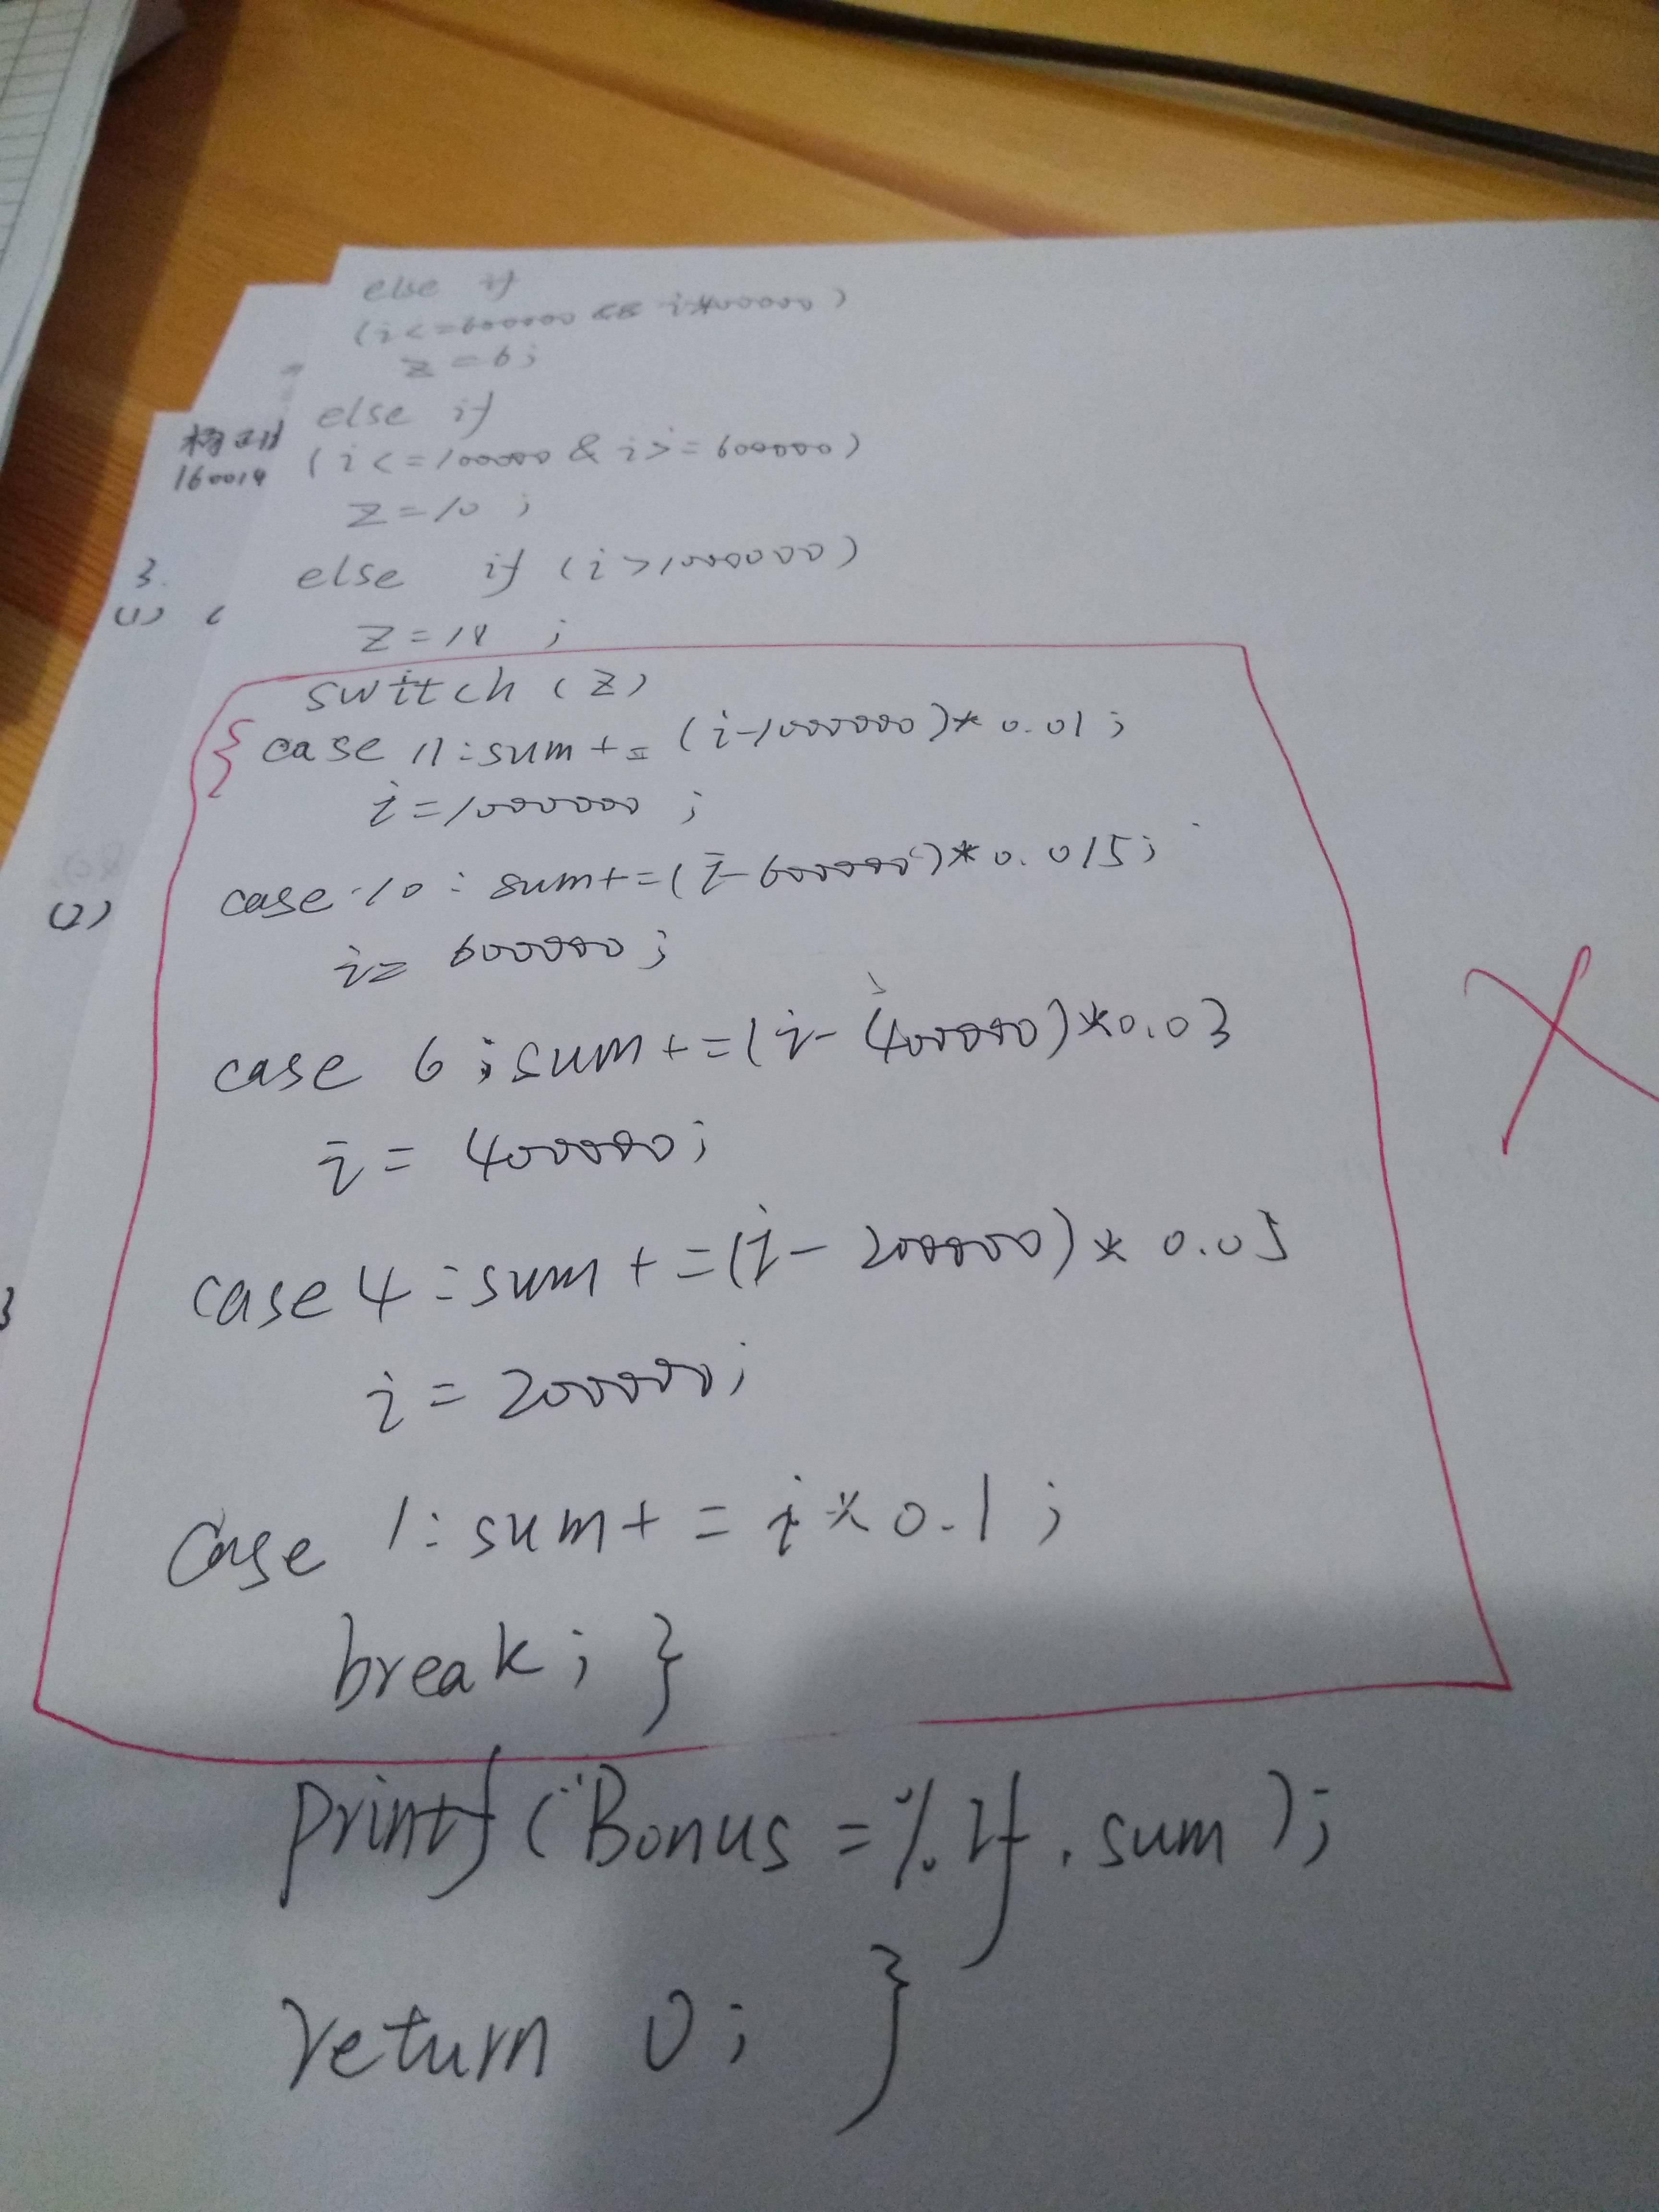 else if
(i<=600000 && i>400000)
z=6;
else if
(i<=100000 & i>=600000)
z=10;
else if (i>1000000)
z=18;
switch (z)
{case 11:sum+=(i-1000000)*0.01;
i=1000000;
case 10:sum+=(i-600000)*0.015;
i=600000;
case 6;sum+=(i-400000)*0.03
i=400000;
case 4:sum+=(i-200000)*0.05
i=200000;
case 1:sum+=i*0.1;
break;}
printf("Bonus=%lf.sum);
return 0; }
160014
3.
(1)
(2)